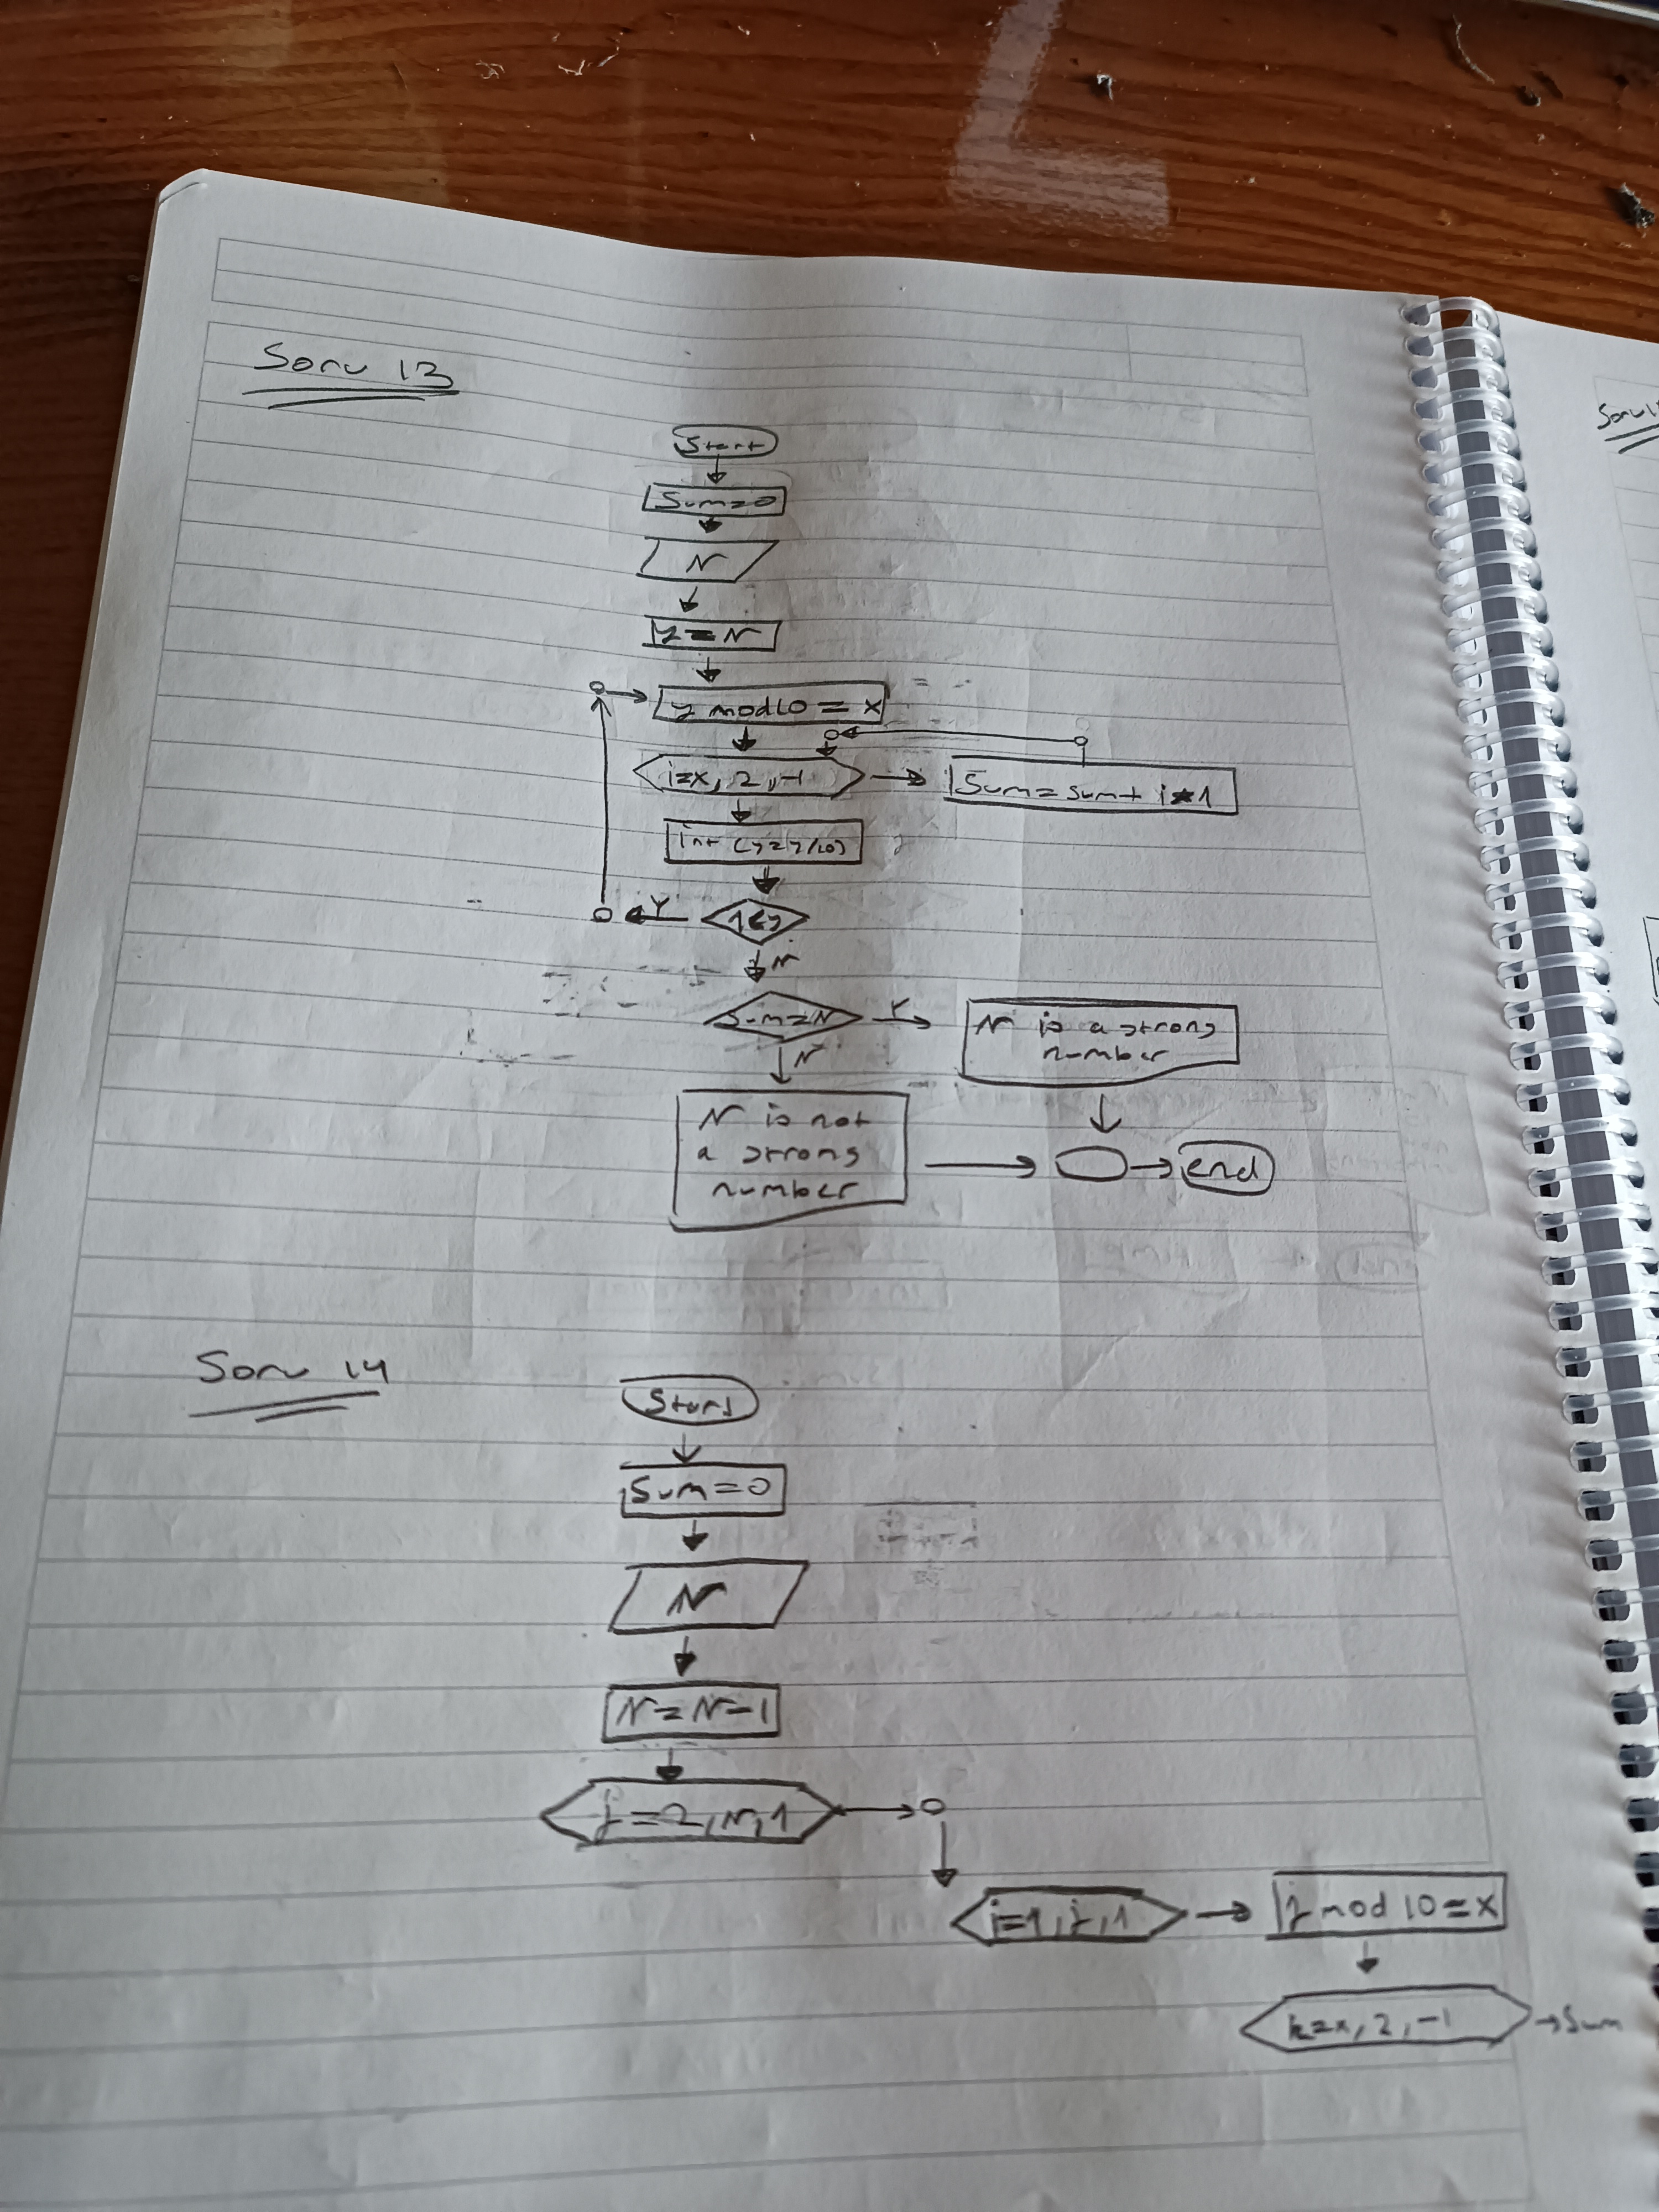 Soru 13
Start
Sum=0
N
y=N
y mod10 = x
i=x, 2, -1
Sum=sum+ i*1
int (y=y/10)
1<y
Y
N
Sum=N
Y
N is a strong
number
N
N is not
a strong
number
end
Soru 14
Start
Sum=0
N
N=N-1
j=2,N,1
i=1,j,1
j mod 10=x
k=x, 2, -1
Sum